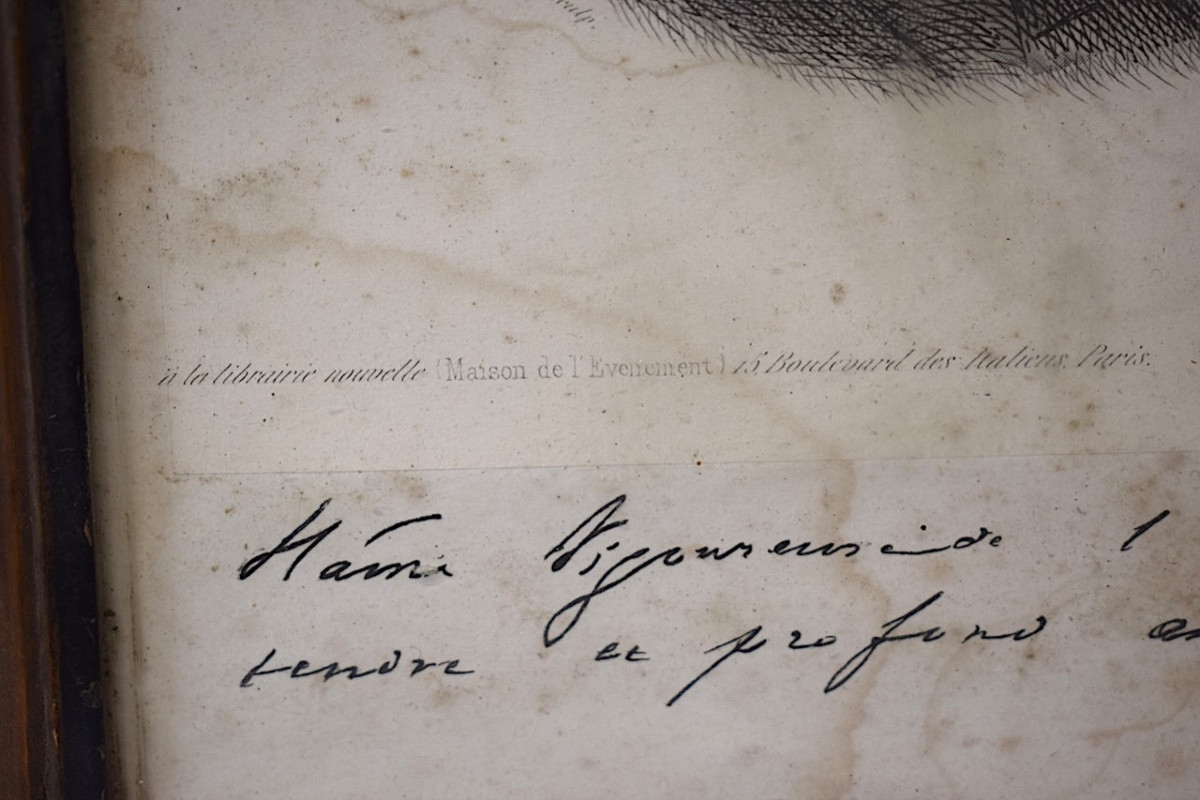 sculp.
à la librairie nouvelle (Maison de l'Evenement) 15, Boulevard des Italiens. Paris.
Haine Vigoureuse de l
tendre et profond am